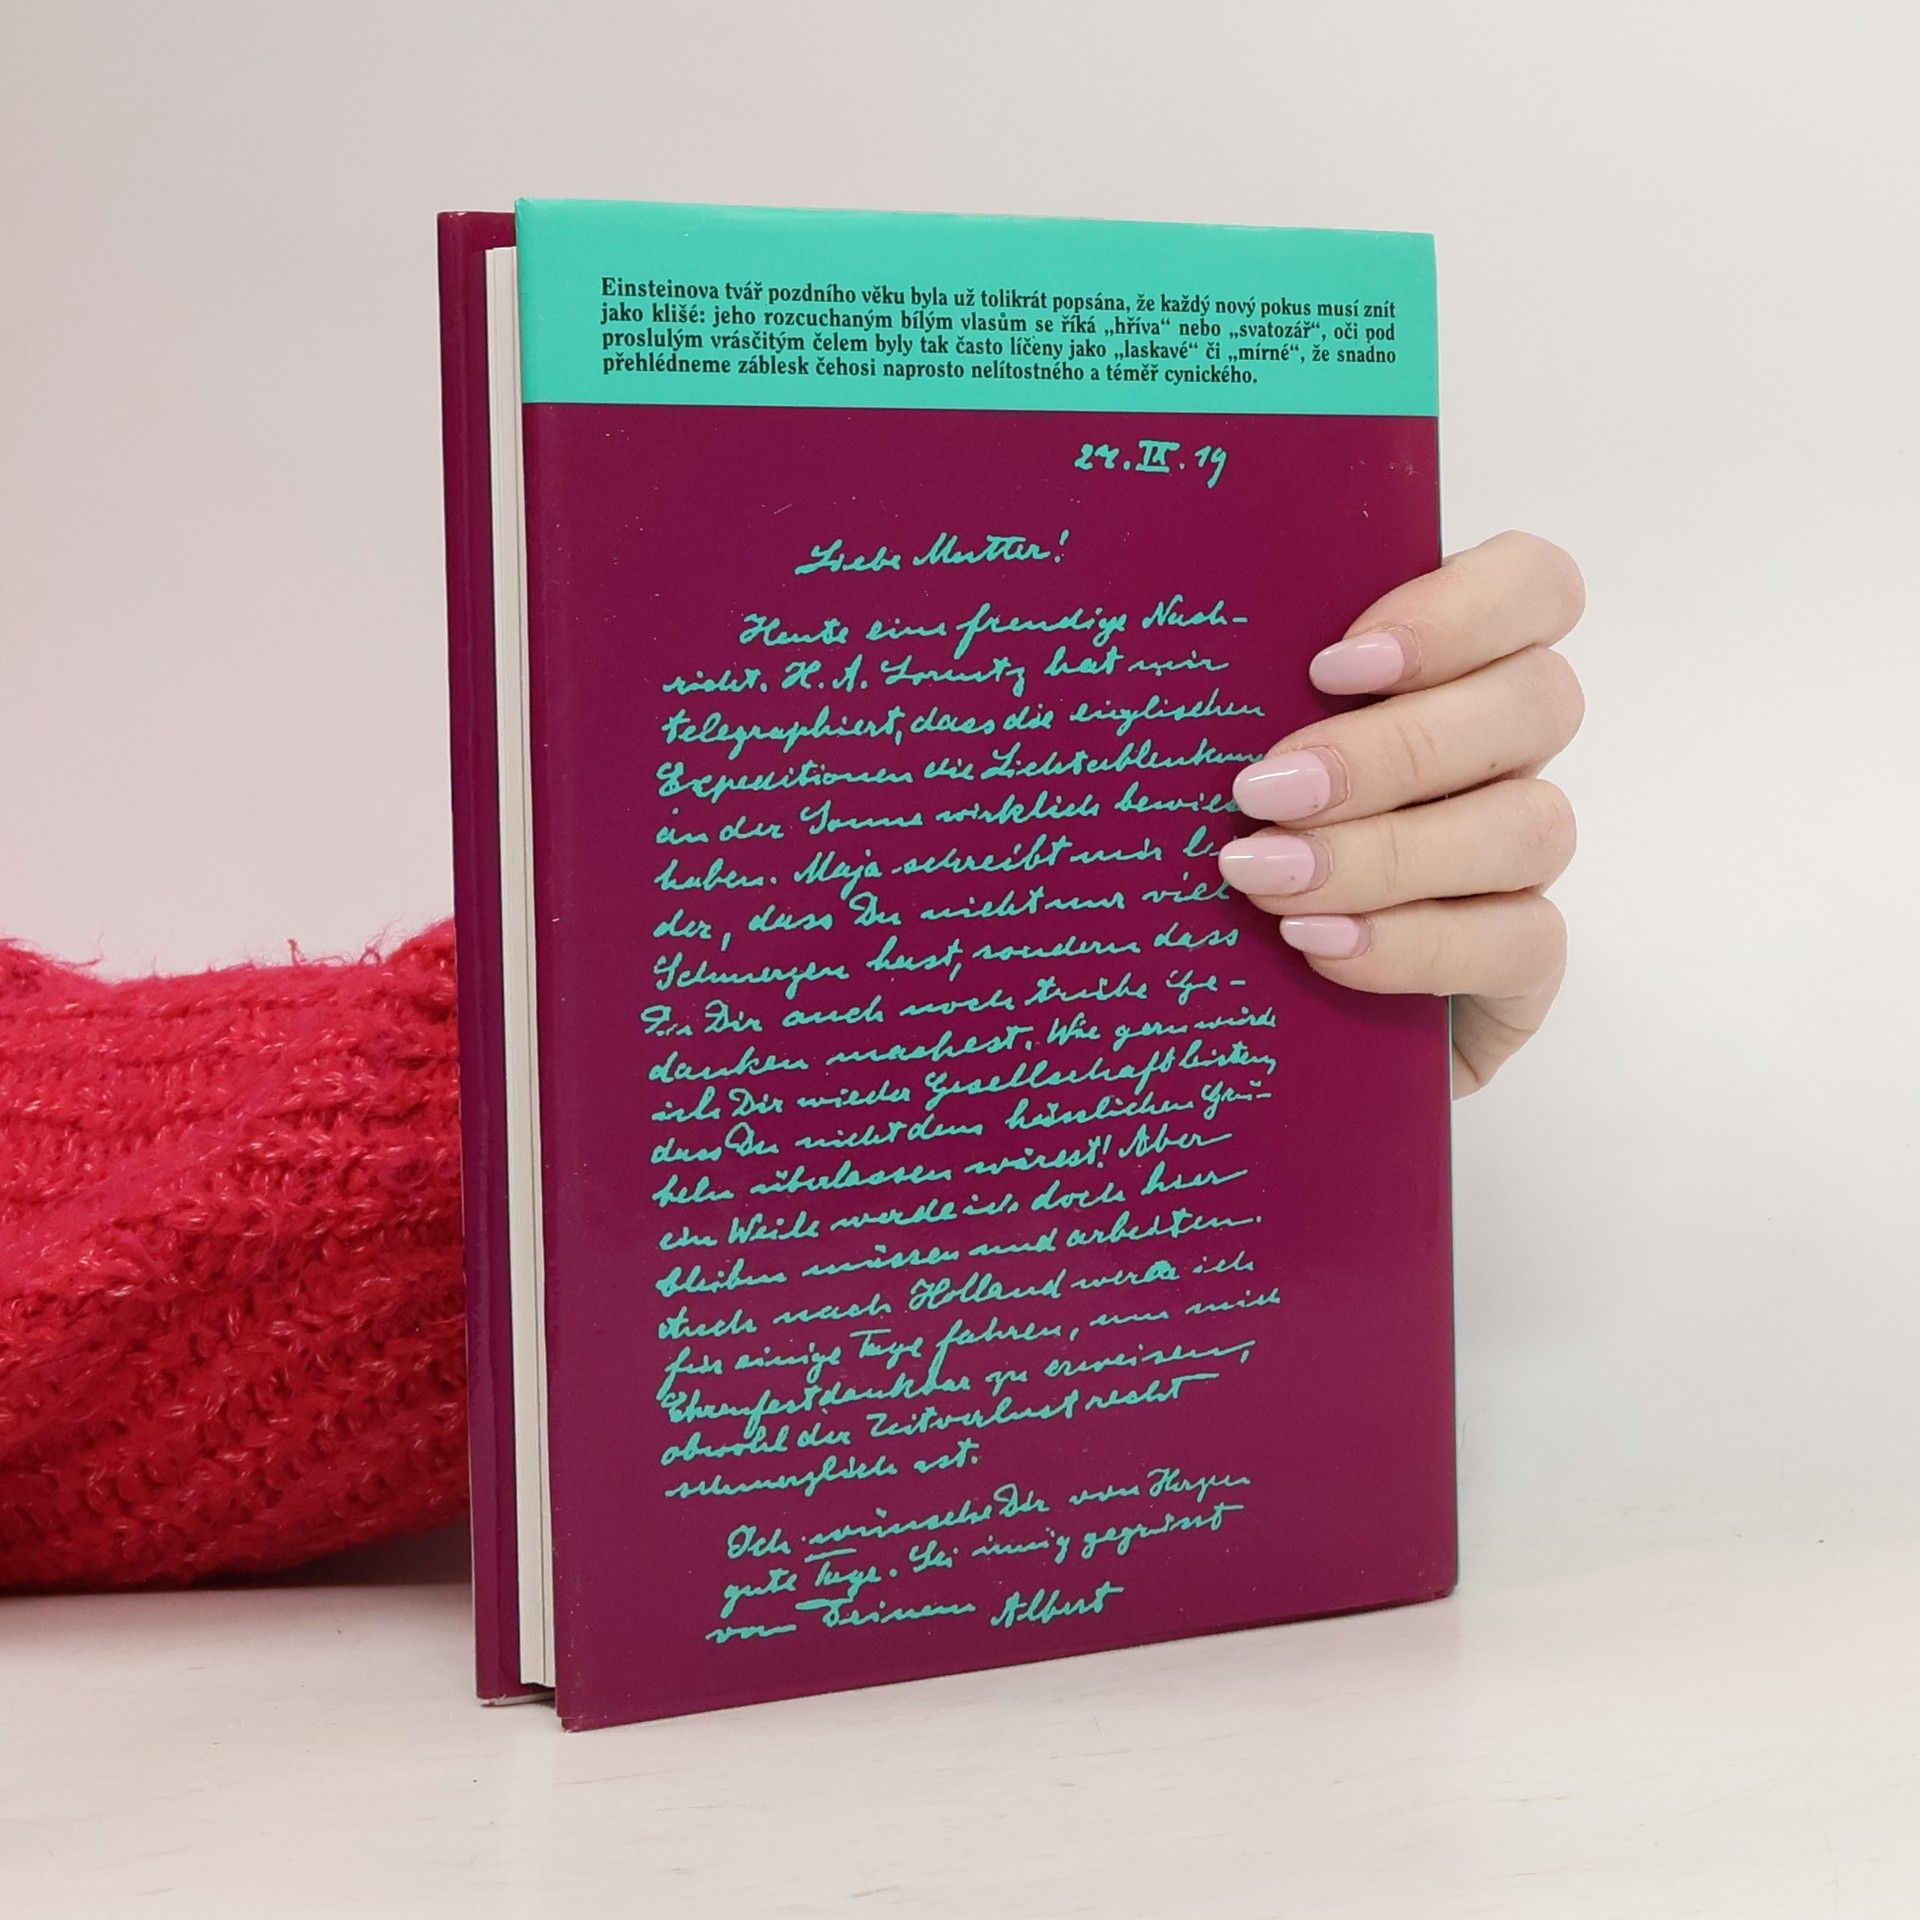 Einsteinova tvář pozdního věku byla už tolikrát popsána, že každý nový pokus musí znít
jako klišé: jeho rozcuchaným bílým vlasům se říká „hříva“ nebo „svatozář“, oči pod
proslulým vrásčitým čelem byly tak často líčeny jako „laskavé“ či „mírné“, že snadno
přehlédneme záblesk čehosi naprosto nelítostného a téměř cynického.
27.IX.19
Liebe Mutter!
Heute eine freudige Nach-
richt. H. A. Lorentz hat mir
telegraphiert, dass die englischen
Expeditionen die Lichtablenkung
an der Sonne wirklich
haben. Maja schreibt mir
der, dass Du nicht nur viel
Schmerzen hast, sondern dass
Du Dir auch noch trübe Ge-
danken machest. Wie gern würde
ich Dir wieder Gesellschaft leisten,
dass Du nicht dem hässlichen Grü-
beln überlassen wärest! Aber
ein Weile werde ich doch hier
bleiben müssen und arbeiten.
Auch nach Holland werde ich
für einige Tage fahren, um mich
Ehrenfest dankbar zu erweisen,
obwohl der Zeitverlust recht
schmerzlich ist.
Ich wünsche Dir von Herzen
gute Tage. Sei innig gegrüsst
von Deinem Albert